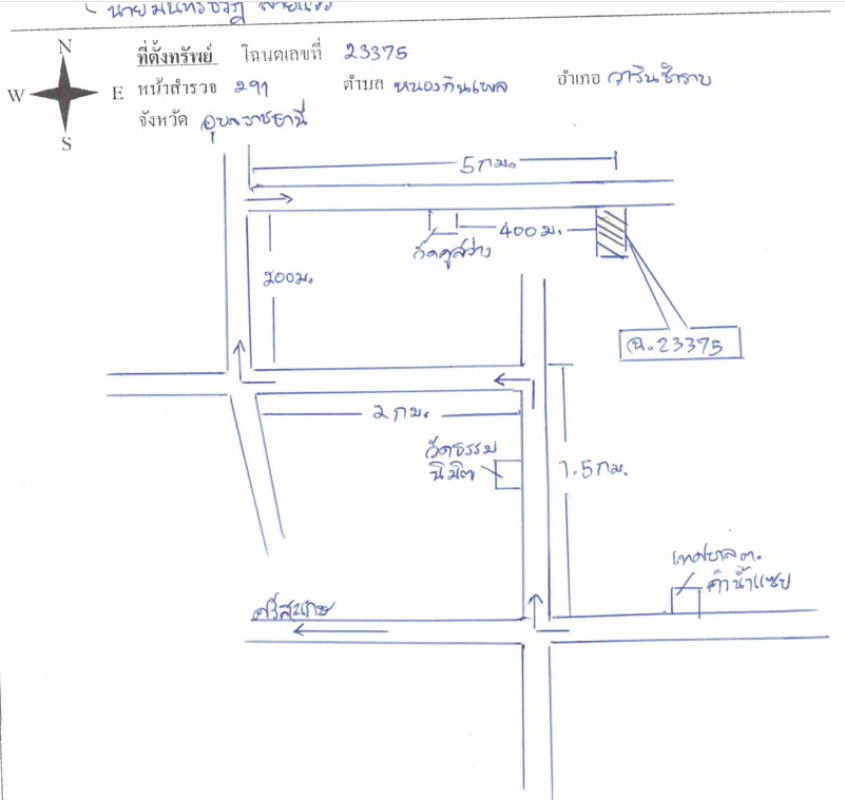 N
W E
S
ที่ตั้งทรัพย์ โฉนดเลขที่ 23375
หน้าสำรวจ 291 ตำบล หนองกินเพล อำเภอ วารินชำราบ
จังหวัด อุบลราชธานี
5 กม.
400 ม.
วัดคูสว่าง
200 ม.
ฉ.23375
2 กม.
วัดธรรม
นิมิต
1.5 กม.
เทศบาล ต.
คำน้ำแซบ
ศรีสะเกษ